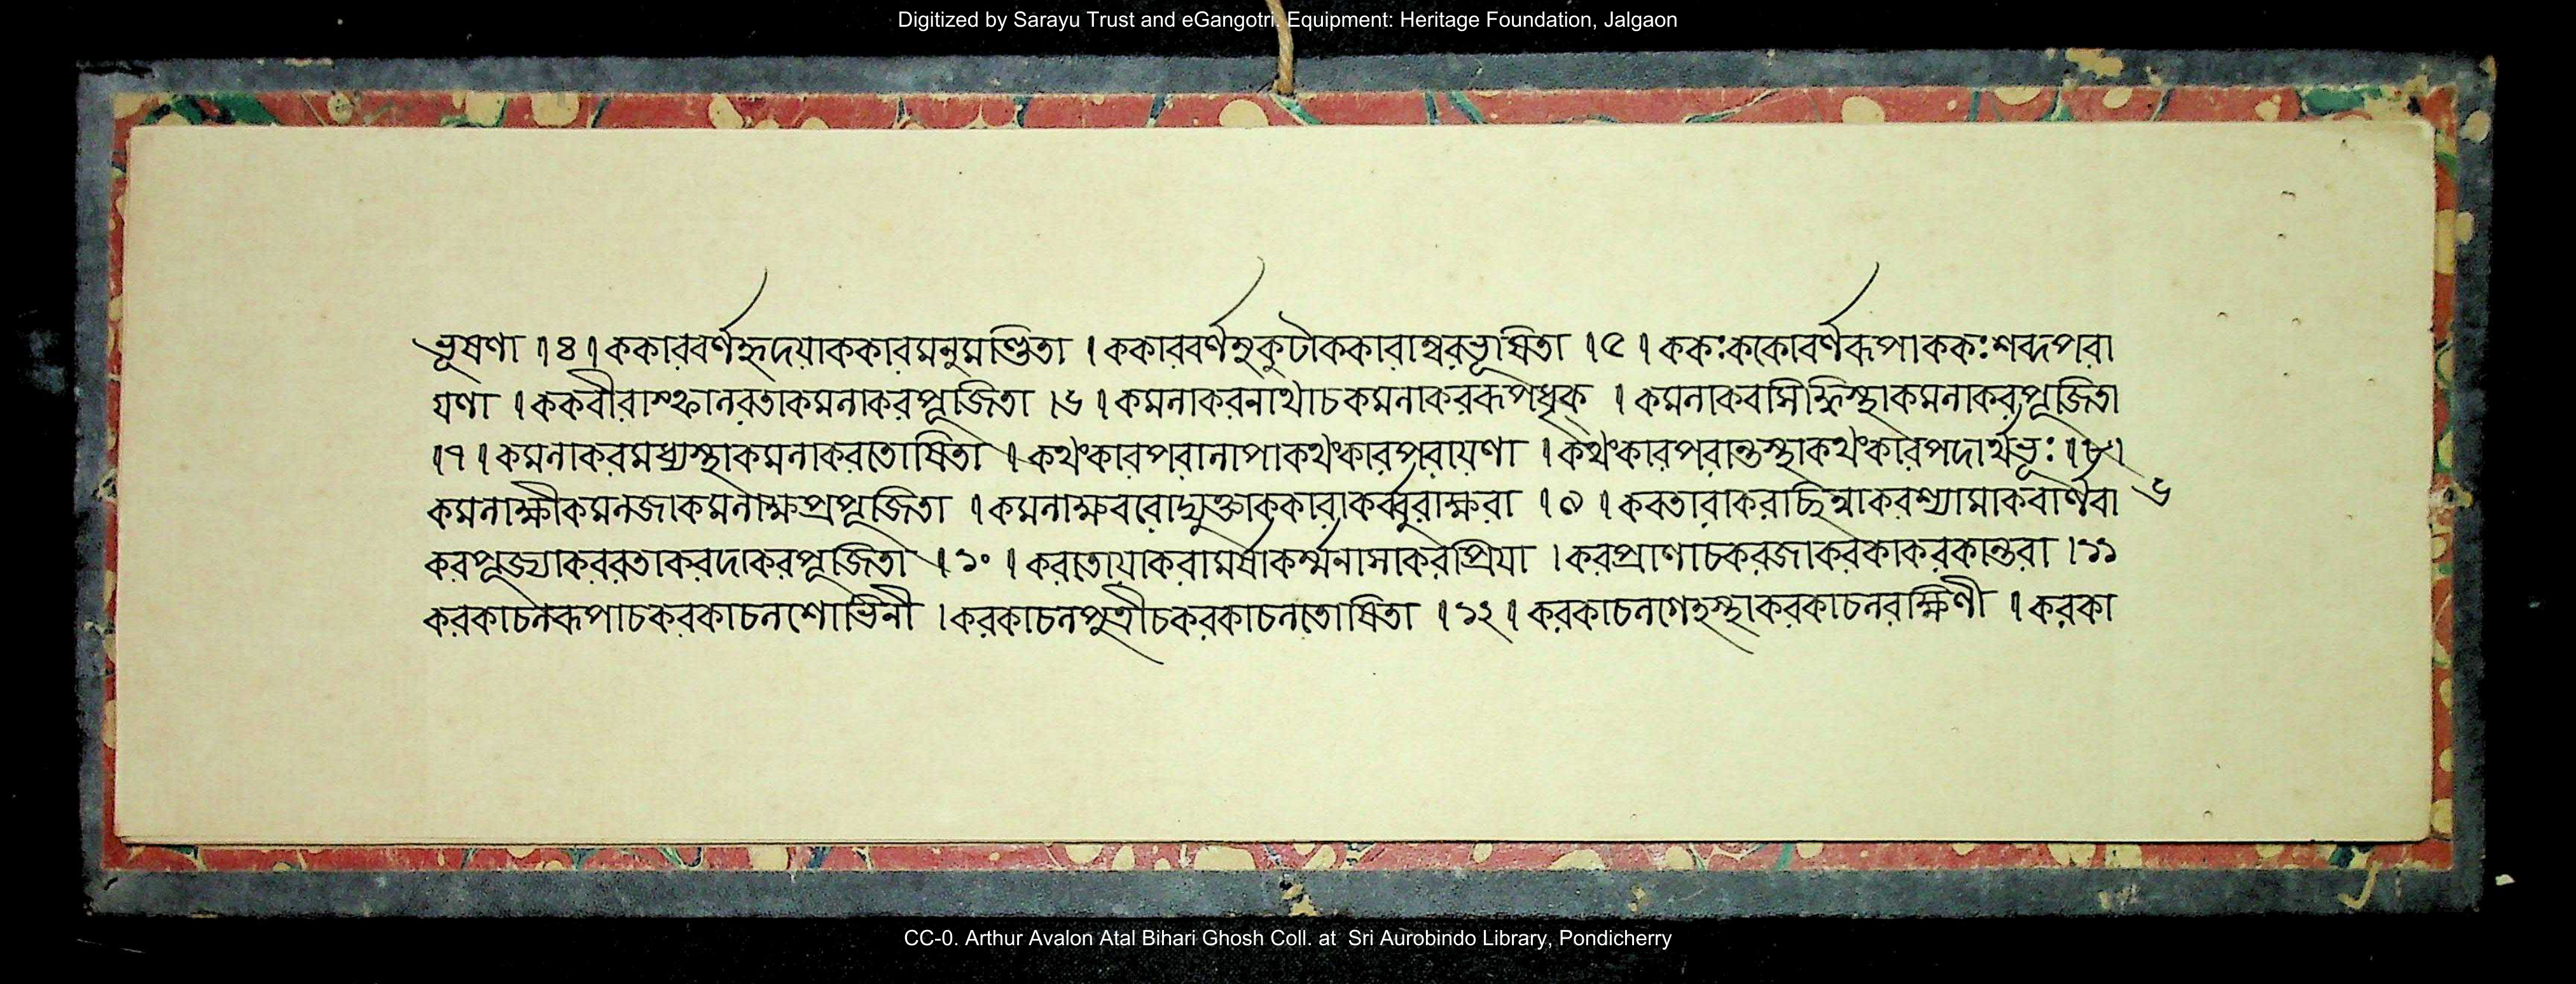 Digitized by Sarayu Trust and eGangotri. Equipment: Heritage Foundation, Jalgaon
ভূষণা ।৪। ককারবর্ণহৃদয়াককারমনুমণ্ডিতা । ককারবর্ণমুকুটাককারাম্বরভূষিতা ।৫। ককঃককোবর্ণরূপাককঃশব্দপরা
য়ণা । ককবীরাস্ফালরতাকমলাকরপূজিতা ।৬। কমলাকরনাথাচকমলাকররূপধৃক্ । কমলাকরসিদ্ধিস্থাকমলাকরপূজিতা
।৭। কমলাকরমধ্যস্থাকমলাকরতোষিতা । কথংকারপরালাপাকথংকারপরায়ণা । কথংকারপরান্তস্থাকথংকারপদার্থভূঃ ।৮।
কমলাক্ষীকমলজাকমলাক্ষপ্রপূজিতা । কমলাক্ষবরোদ্যুক্তাককারাকর্ব্বুরাক্ষরা ।৯। করতারাকরাছিন্নাকরশ্যামাকরার্ণবা ৬
করপূজ্যাকররতাকরদাকরপূজিতা ।১০। করতোয়াকরামর্ষাকর্ম্মনাসাকরপ্রিয়া । করপ্রাণাচকরজাকরকাকরকান্তরা ।১১
করকাচলরূপাচকরকাচলশোভিনী । করকাচলপুত্রীচকরকাচলতোষিতা ।১২। করকাচলগেহস্থাকরকাচলরক্ষিণী । করকা
CC-0. Arthur Avalon Atal Bihari Ghosh Coll. at Sri Aurobindo Library, Pondicherry